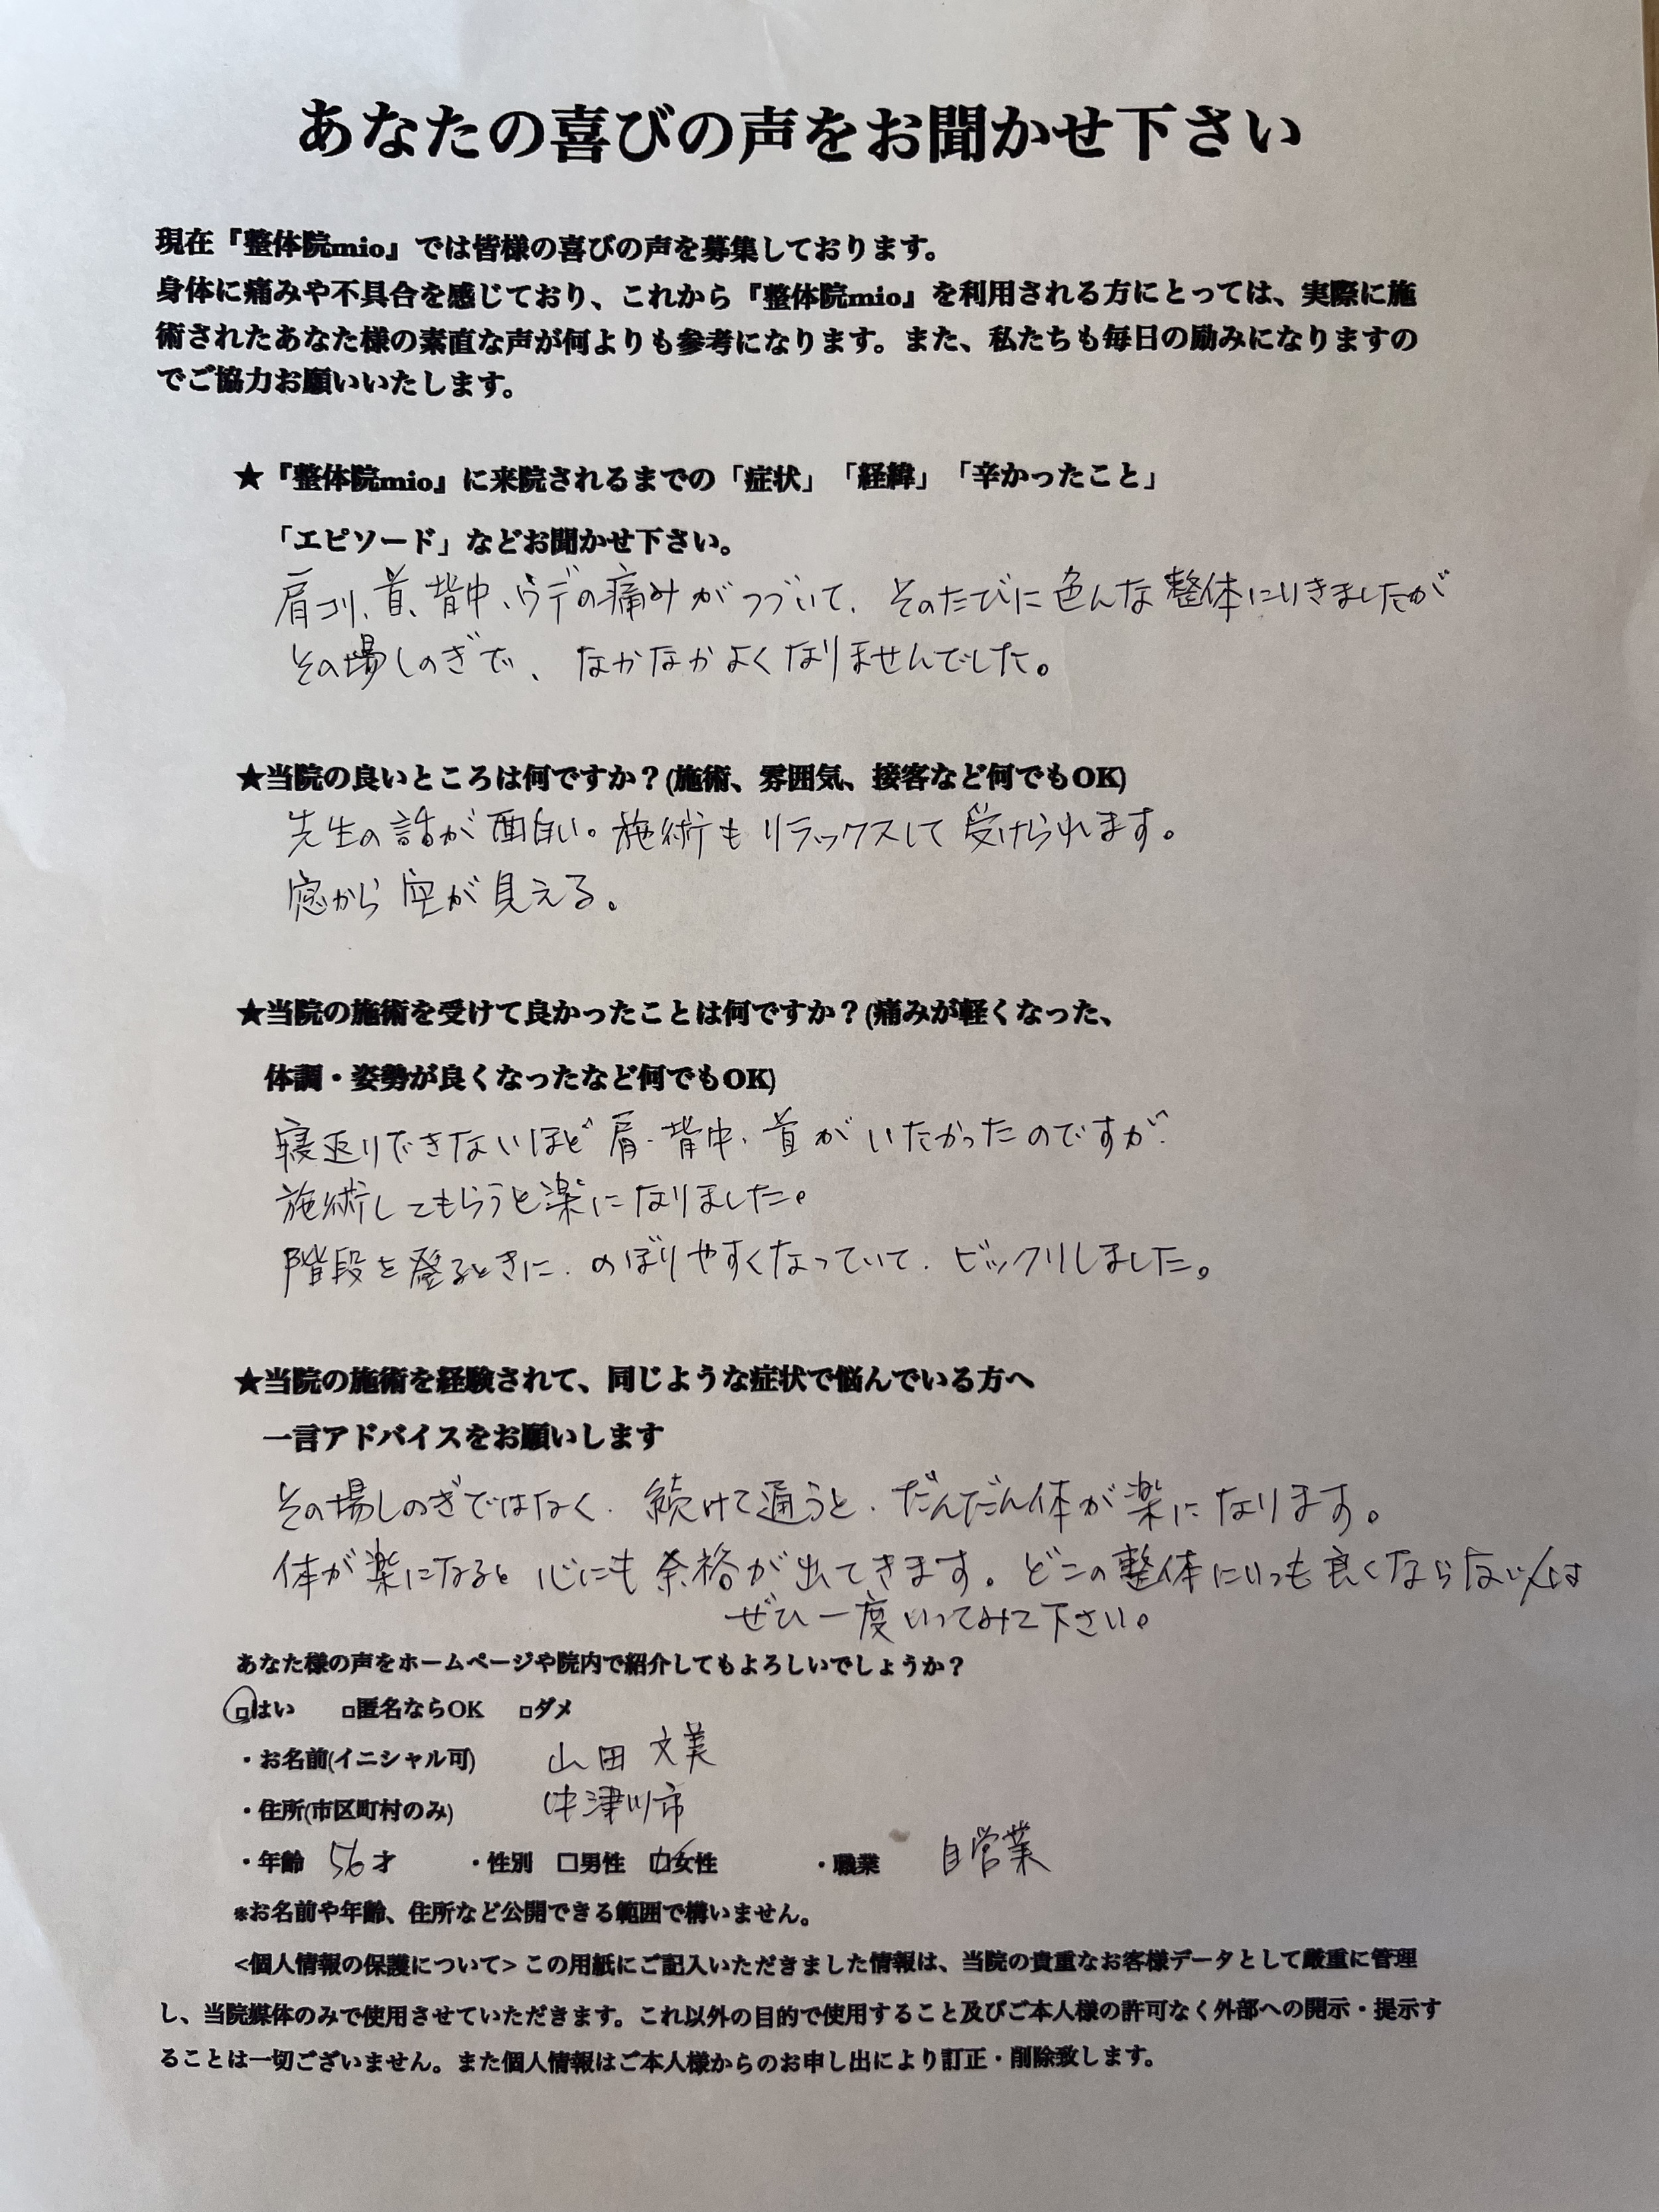 あなたの喜びの声をお聞かせ下さい
現在『整体院mio』では皆様の喜びの声を募集しております。
身体に痛みや不具合を感じており、これから『整体院mio』を利用される方にとっては、実際に施
術されたあなた様の素直な声が何よりも参考になります。また、私たちも毎日の励みになりますの
でご協力お願いいたします。
★『整体院mio』に来院されるまでの「症状」「経緯」「辛かったこと」
「エピソード」などお聞かせ下さい。
肩コリ、首、背中、ウデの痛みがつづいて、そのたびに色んな整体にいきましたが
その場しのぎで、なかなかよくなりませんでした。
★当院の良いところは何ですか？(施術、雰囲気、接客など何でもOK)
先生の話が面白い。施術もリラックスして受けられます。
窓から空が見える。
★当院の施術を受けて良かったことは何ですか？(痛みが軽くなった、
体調・姿勢が良くなったなど何でもOK)
寝返りできないほど肩・背中・首がいたかったのですが、
施術してもらうと楽になりました。
階段を登るときに、のぼりやすくなっていて、ビックリしました。
★当院の施術を経験されて、同じような症状で悩んでいる方へ
一言アドバイスをお願いします
その場しのぎではなく、続けて通うと、だんだん体が楽になります。
体が楽になると心にも余裕が出てきます。どこの整体にいっても良くならない人は
ぜひ一度いってみて下さい。
あなた様の声をホームページや院内で紹介してもよろしいでしょうか？
□はい □匿名ならOK □ダメ
・お名前(イニシャル可) 山田 文美
・住所(市区町村のみ) 中津川市
・年齢 56才 ・性別 □男性 ☑女性 ・職業 自営業
※お名前や年齢、住所など公開できる範囲で構いません。
<個人情報の保護について> この用紙にご記入いただきました情報は、当院の貴重なお客様データとして厳重に管理
し、当院媒体のみで使用させていただきます。これ以外の目的で使用すること及びご本人様の許可なく外部への開示・提示す
ることは一切ございません。また個人情報はご本人様からのお申し出により訂正・削除致します。